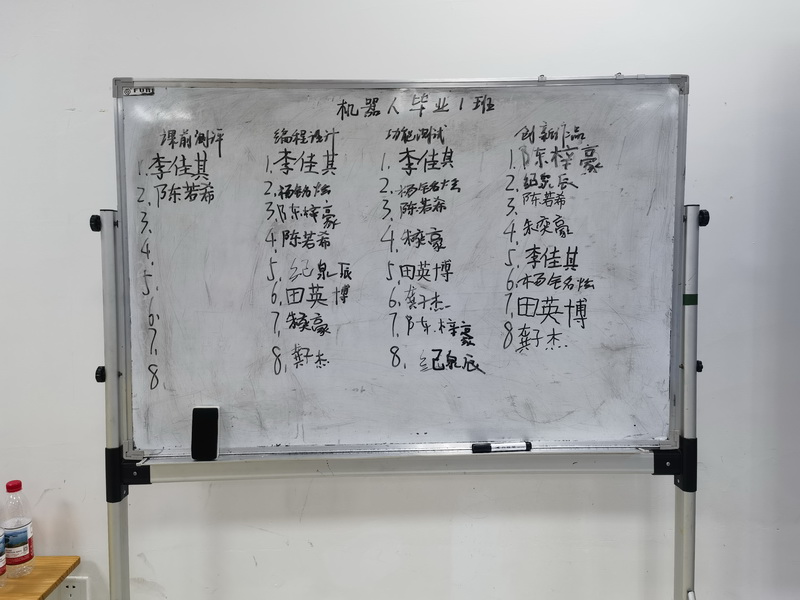 机器人毕业1班
课前测评
1.李佳其
2.陈若希
3.
4.
5.
6.
7.
8.
编程设计
1.李佳其
2.杨铭炫
3.陈梓豪
4.陈若希
5.纪泉辰
6.田英博
7.朱奕豪
8.龚子杰
功能测试
1.李佳其
2.杨铭炫
3.陈若希
4.朱奕豪
5.田英博
6.龚子杰
7.陈梓豪
8.纪泉辰
创新作品
1.陈梓豪
2.纪泉辰
3.陈若希
4.朱奕豪
5.李佳其
6.杨铭炫
7.田英博
8.龚子杰